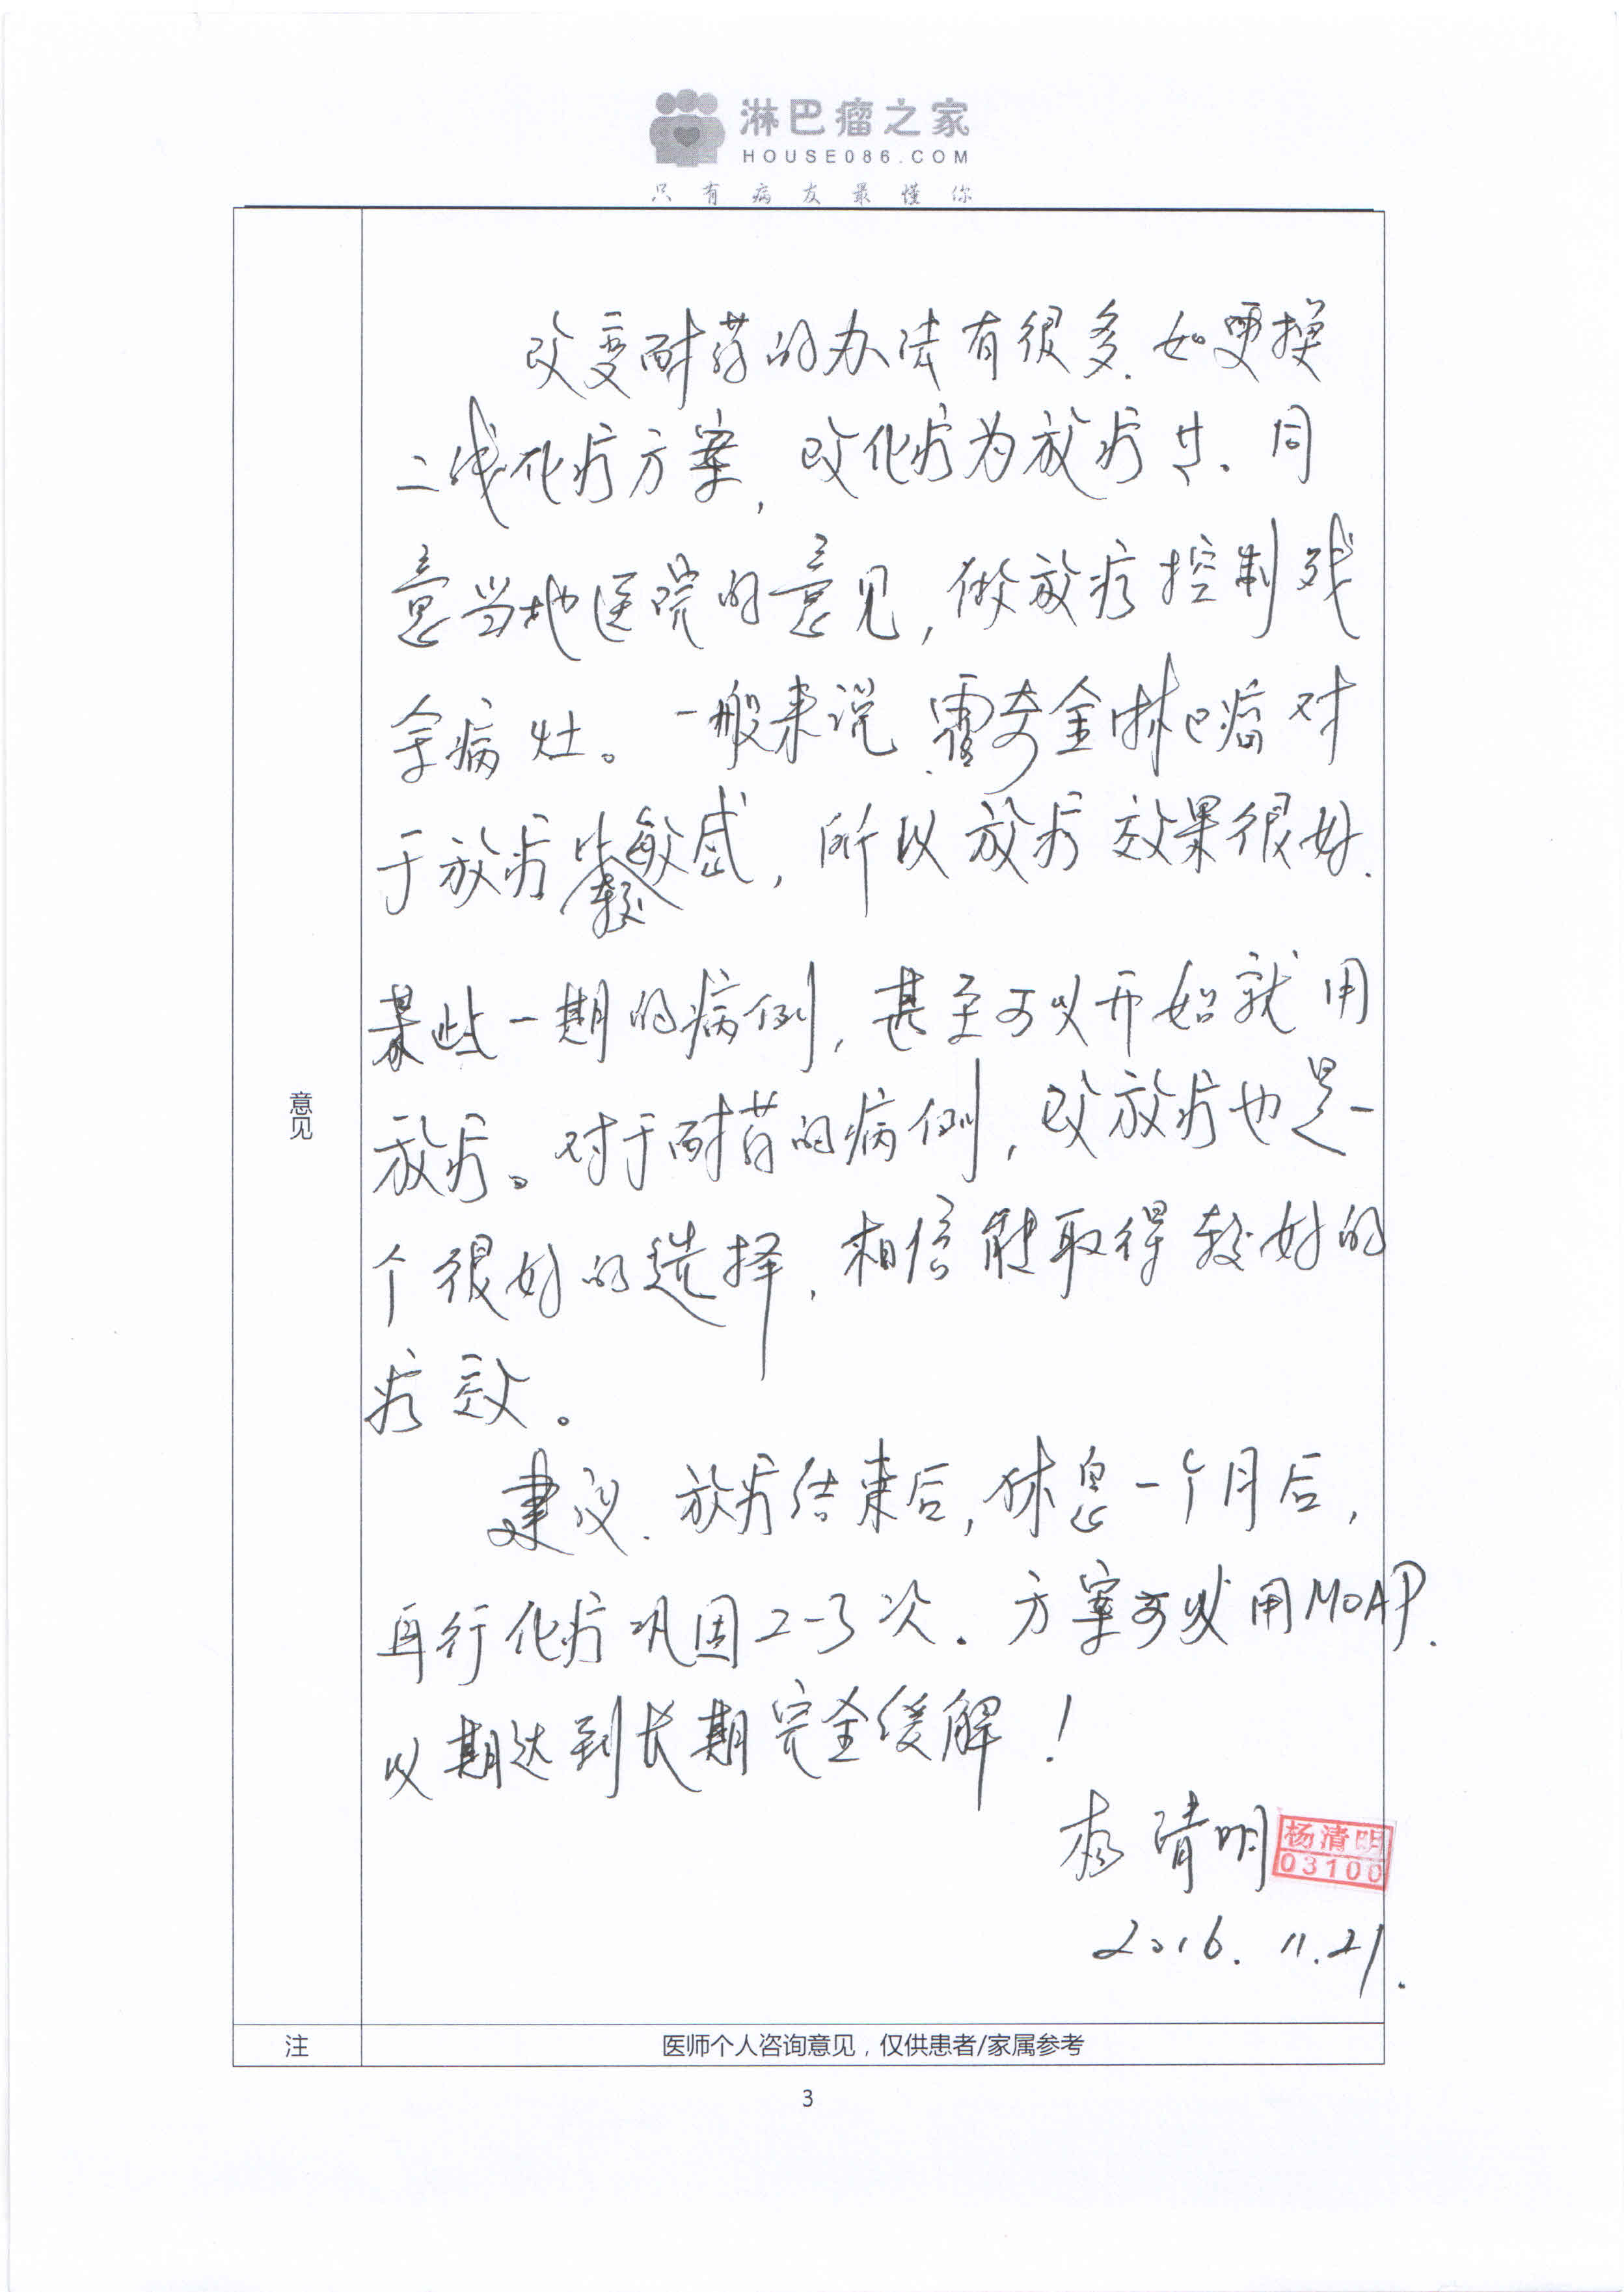 淋巴瘤之家
HOUSE086.COM
只有病友最懂你
改变耐药的办法有很多.如更换
二线化疗方案,改化疗为放疗廿.同
意当地医院的意见,做放疗控制残
余病灶。一般来说.霍奇金淋巴瘤对
于放疗比较敏感,所以放疗效果很好.
某些一期的病例,甚至可以开始就用
放疗。对于耐药的病例,改放疗也是一
个很好的选择,相信能取得较好的
疗效。
建议.放疗结束后,休息一个月后,
再行化疗巩固2-3次.方案可以用MOAP.
以期达到长期完全缓解!
杨清明
杨清明
03100
2016.11.21.
意见
注
医师个人咨询意见，仅供患者/家属参考
3